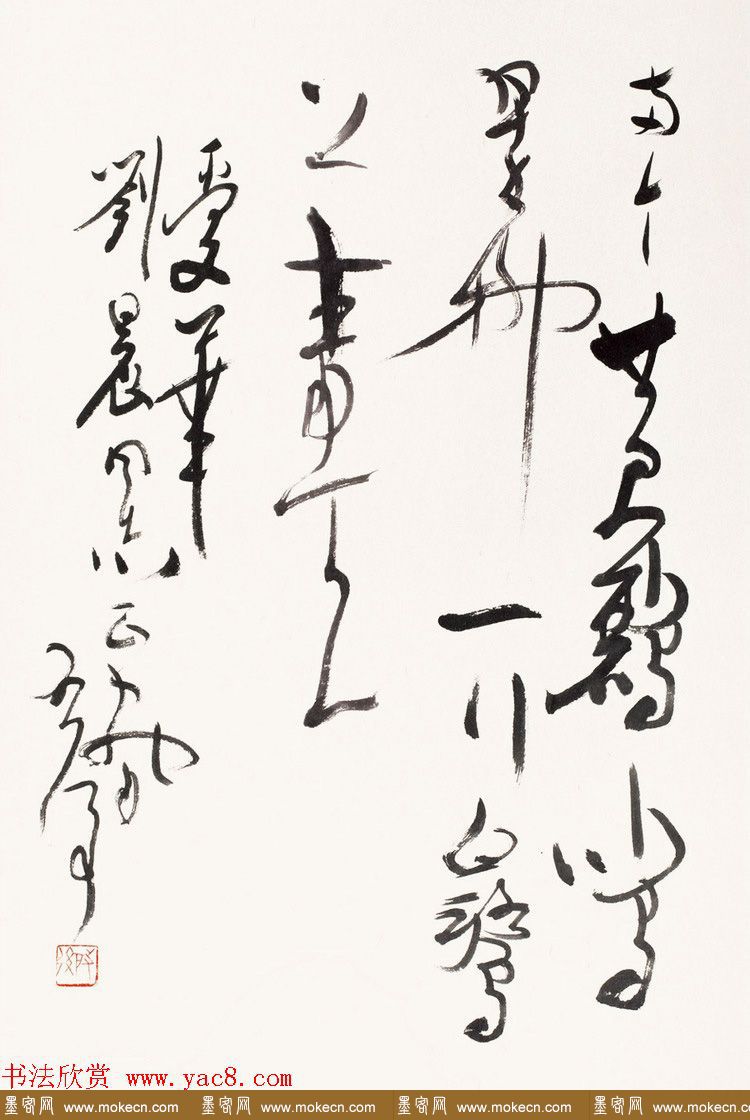 兩个黃鸝鳴
翠柳一行白鷺
上青天
愛華
劉晨同志正
书法欣赏 www.yac8.com
墨客网 www.mokecn.com 墨客网 www.mokecn.com 墨客网 www.mokecn.com 墨客网 www.mokecn.com